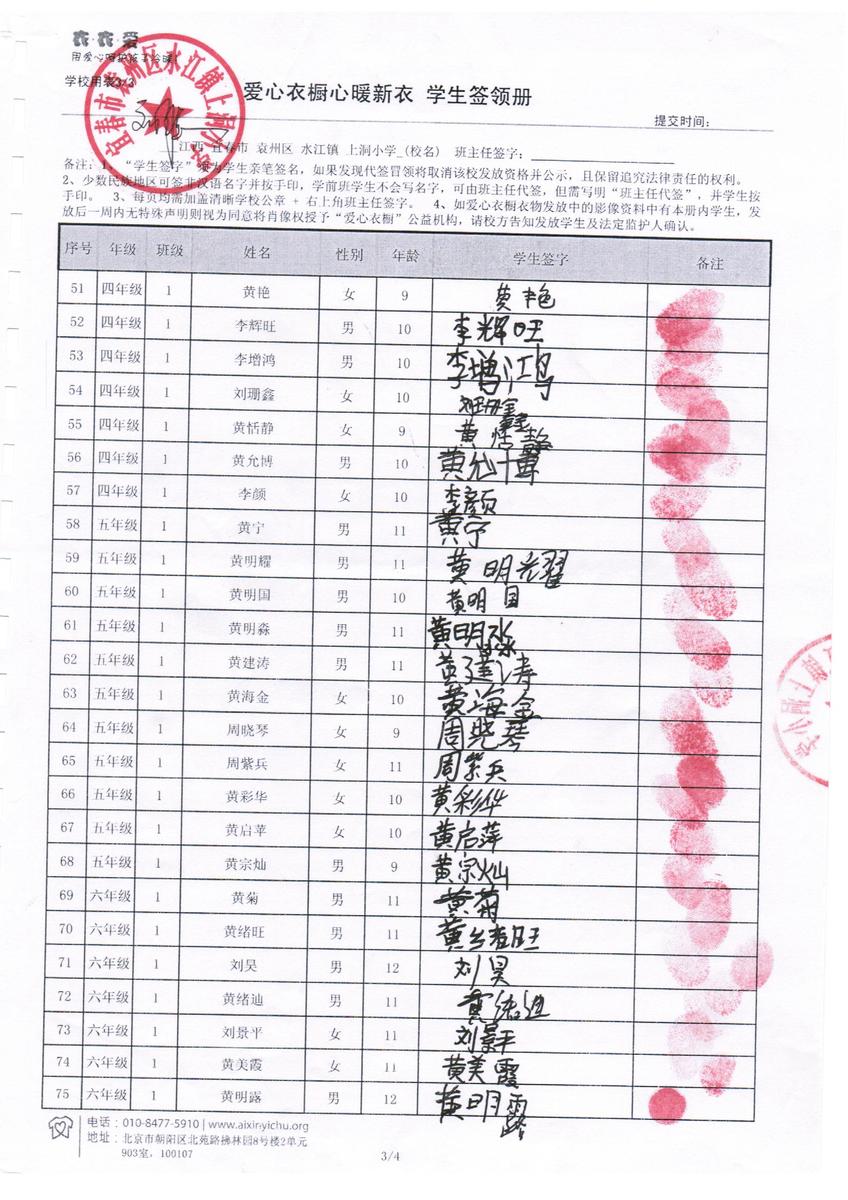 衣·衣·爱
用爱心呵护孩子冷暖!
学校用表3/3
爱心衣橱心暖新衣 学生签领册
提交时间:
江西 宜春市 袁州区 水江镇 上洞小学_(校名) 班主任签字:
备注:1、“学生签字”须为学生亲笔签名,如果发现代签冒领将取消该校发放资格并公示,且保留追究法律责任的权利。
2、少数民族地区可签非汉语名字并按手印,学前班学生不会写名字,可由班主任代签,但需写明“班主任代签”,并学生按
手印。 3、每页均需加盖清晰学校公章 + 右上角班主任签字。 4、如爱心衣橱衣物发放中的影像资料中有本册内学生,发
放后一周内无特殊声明则视为同意将肖像权授予“爱心衣橱”公益机构,请校方告知发放学生及法定监护人确认。
序号 年级 班级 姓名 性别 年龄 学生签字 备注
51 四年级 1 黄艳 女 9 黄艳
52 四年级 1 李辉旺 男 10 李辉旺
53 四年级 1 李增鸿 男 10 李增鸿
54 四年级 1 刘珊鑫 女 10 刘珊鑫
55 四年级 1 黄恬静 女 9 黄恬静
56 四年级 1 黄允博 男 10 黄允博
57 四年级 1 李颜 女 10 李颜
58 五年级 1 黄宁 男 11 黄宁
59 五年级 1 黄明耀 男 11 黄明耀
60 五年级 1 黄明国 男 10 黄明国
61 五年级 1 黄明淼 男 11 黄明淼
62 五年级 1 黄建涛 男 11 黄建涛
63 五年级 1 黄海金 女 10 黄海金
64 五年级 1 周晓琴 女 9 周晓琴
65 五年级 1 周紫兵 女 11 周紫兵
66 五年级 1 黄彩华 女 10 黄彩华
67 五年级 1 黄启苹 女 10 黄启萍
68 五年级 1 黄宗灿 男 9 黄宗灿
69 六年级 1 黄菊 男 11 黄菊
70 六年级 1 黄绪旺 男 11 黄绪旺
71 六年级 1 刘昊 男 12 刘昊
72 六年级 1 黄绪迪 男 11
73 六年级 1 刘景平 女 11 刘景平
74 六年级 1 黄美霞 女 11 黄美霞
75 六年级 1 黄明露 男 12 黄明露
电话:010-8477-5910 | www.aixinyichu.org
地址:北京市朝阳区北苑路拂林园8号楼2单元
903室,100107
3/4